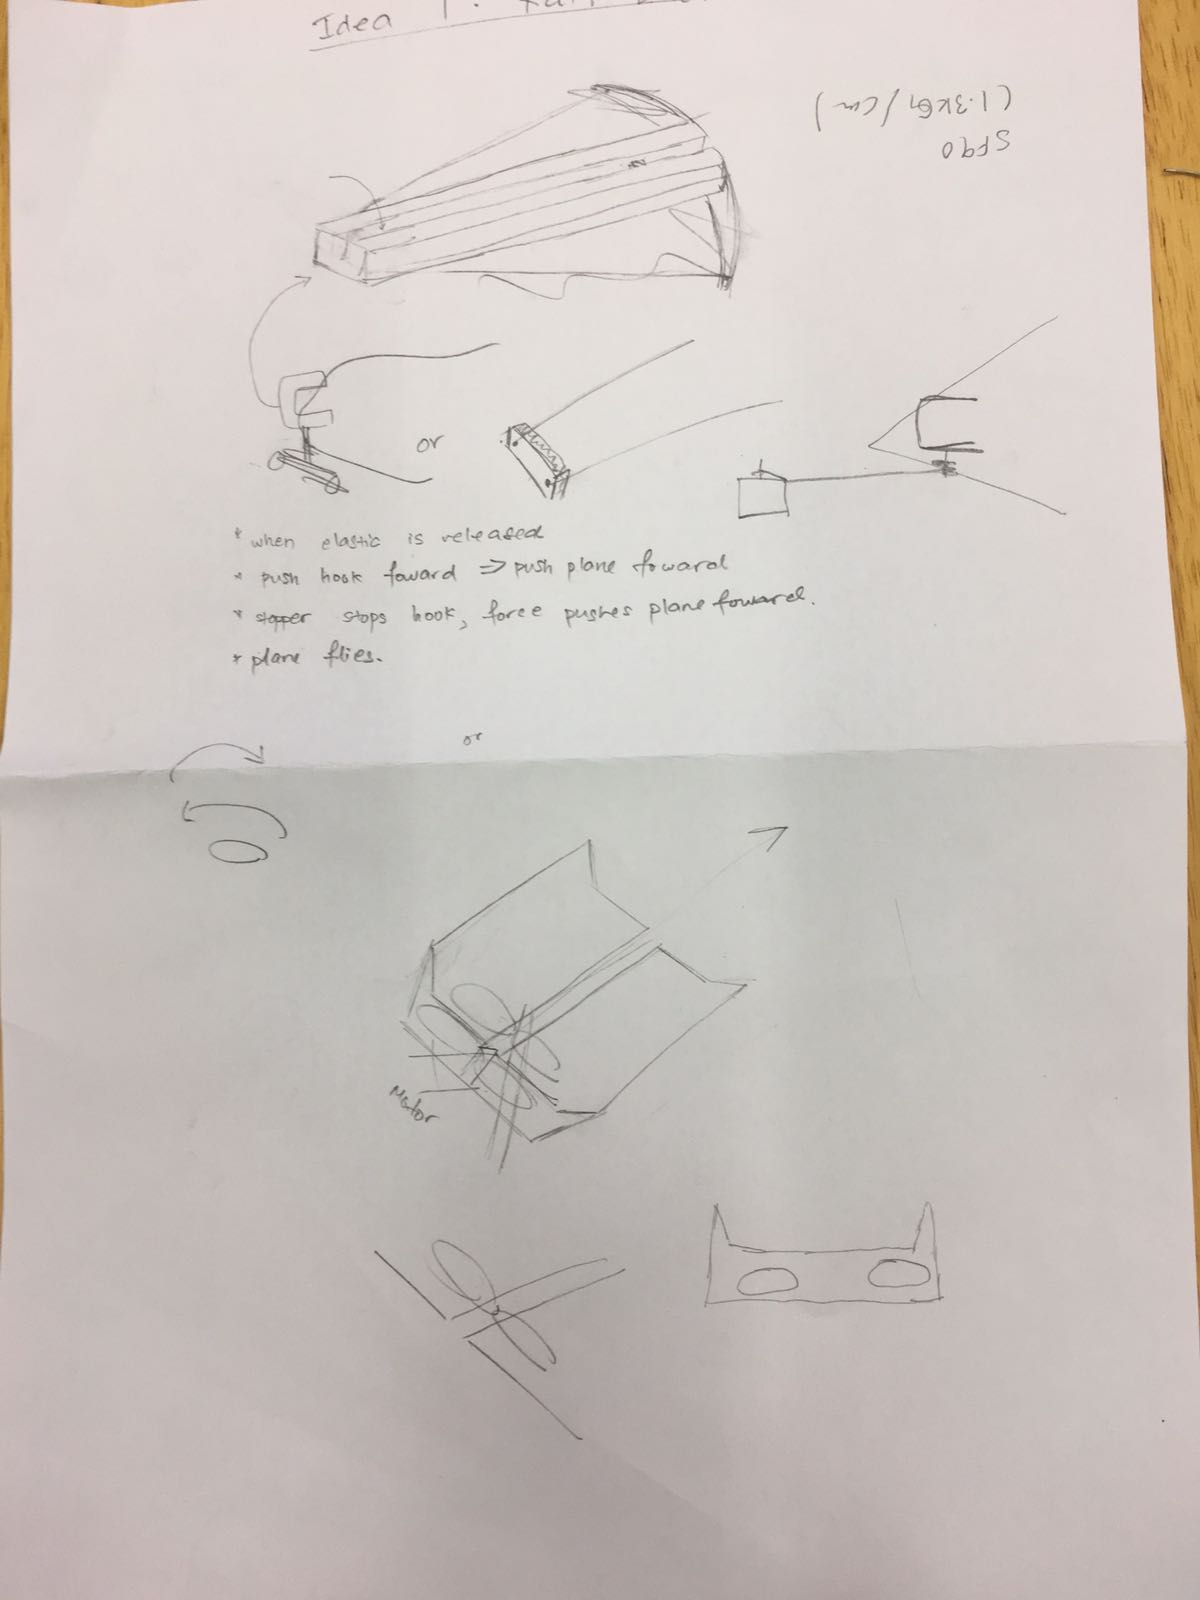 Idea 1:
SF90
(1.3KG/cm)
or
* when elastic is released
* push hook foward => push plane foward
* stopper stops hook, force pushes plane foward.
* plane flies.
or
Motor